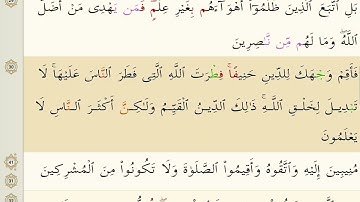 بَلِ ٱتَّبَعَ ٱلَّذِينَ ظَلَمُوٓا۟ أَهْوَآءَهُم بِغَيْرِ عِلْمٍۢ ۖ فَمَن يَهْدِى مَنْ أَضَلَّ
ٱللَّهُ ۖ وَمَا لَهُم مِّن نَّـٰصِرِينَ
فَأَقِمْ وَجْهَكَ لِلدِّينِ حَنِيفًۭا ۚ فِطْرَتَ ٱللَّهِ ٱلَّتِى فَطَرَ ٱلنَّاسَ عَلَيْهَا ۚ لَا
تَبْدِيلَ لِخَلْقِ ٱللَّهِ ۚ ذَٰلِكَ ٱلدِّينُ ٱلْقَيِّمُ وَلَـٰكِنَّ أَكْثَرَ ٱلنَّاسِ لَا
يَعْلَمُونَ
مُنِيبِينَ إِلَيْهِ وَٱتَّقُوهُ وَأَقِيمُوا۟ ٱلصَّلَوٰةَ وَلَا تَكُونُوا۟ مِنَ ٱلْمُشْرِكِينَ